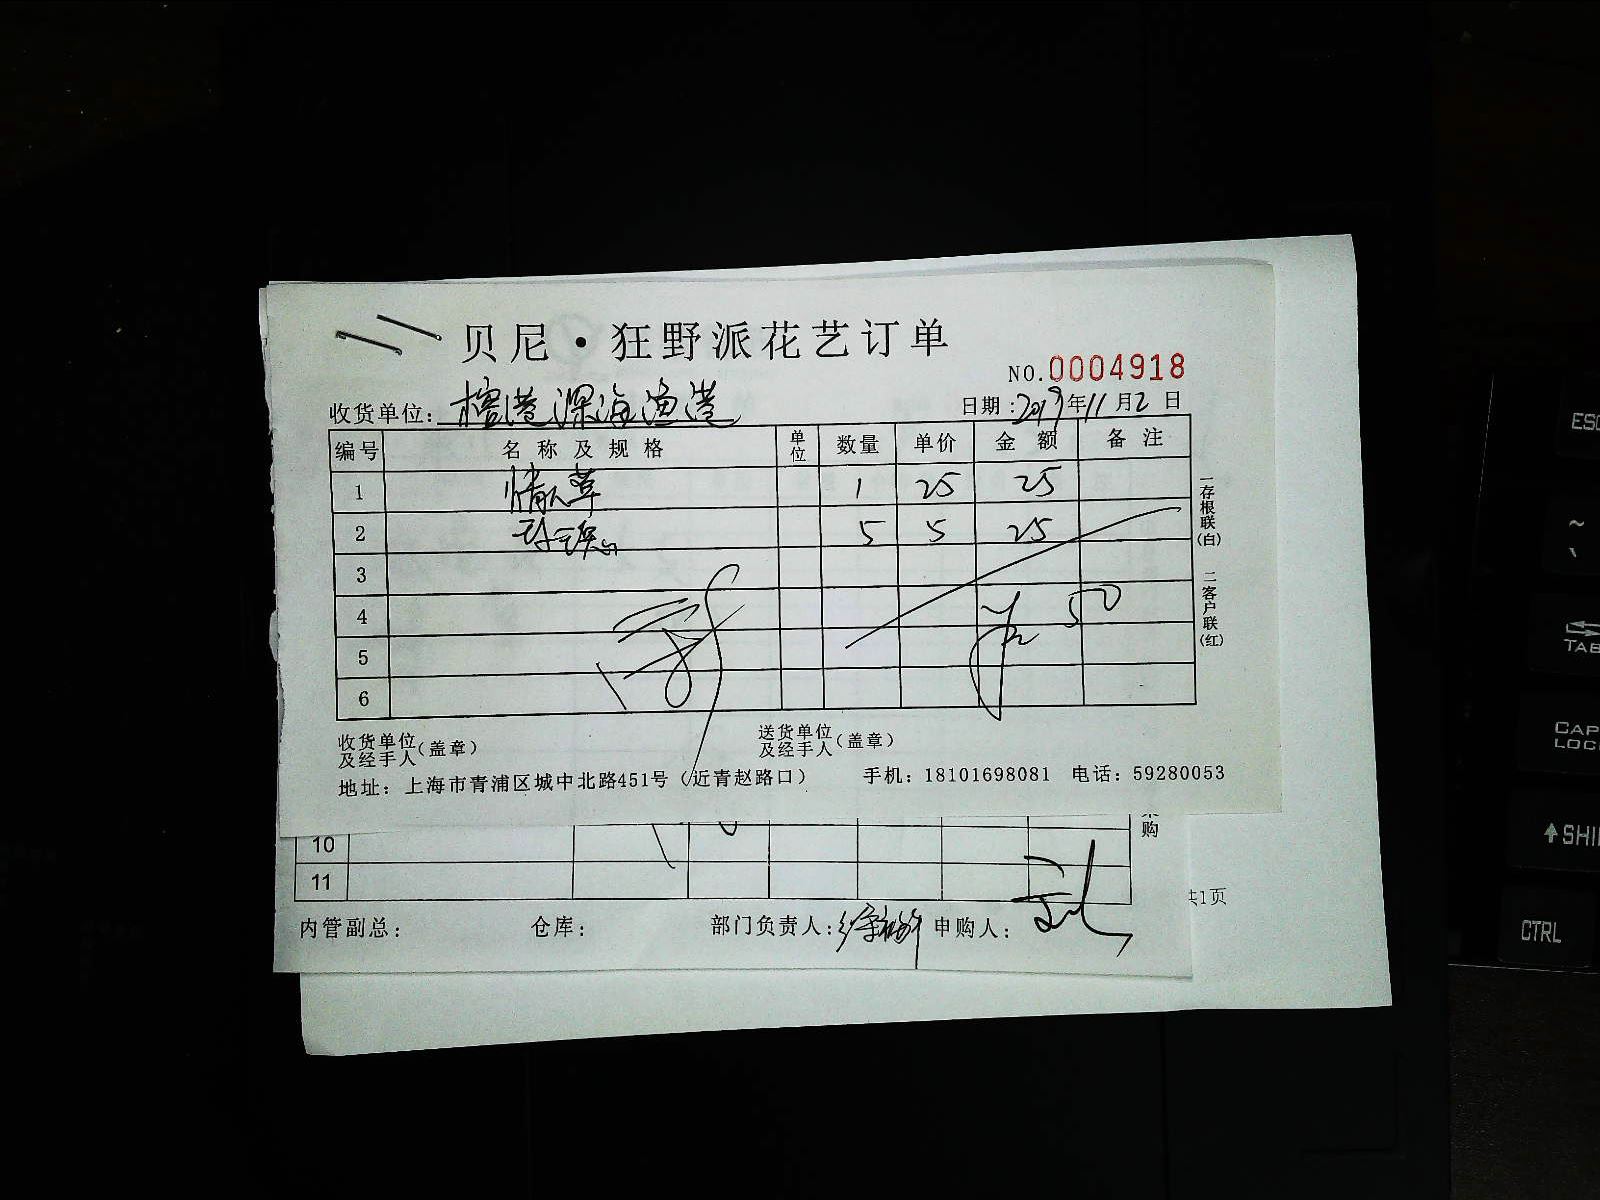 贝尼·狂野派花艺订单
NO.0004918
收货单位: 檀港深海渔港
日期: 2019年11月2日
编号 名称及规格 单位 数量 单价 金额 备注
1 情人草 1 25 25
2 5 5 25
3
4 50
5
6
一存根联(白) 二客户联(红)
收货单位及经手人(盖章) 送货单位及经手人(盖章)
地址: 上海市青浦区城中北路451号(近青赵路口) 手机: 18101698081 电话: 59280053
购
10
11
共1页
内管副总: 仓库: 部门负责人: 申购人:
ESC
~
、
TAB
CAP
LOC
SHI
CTRL